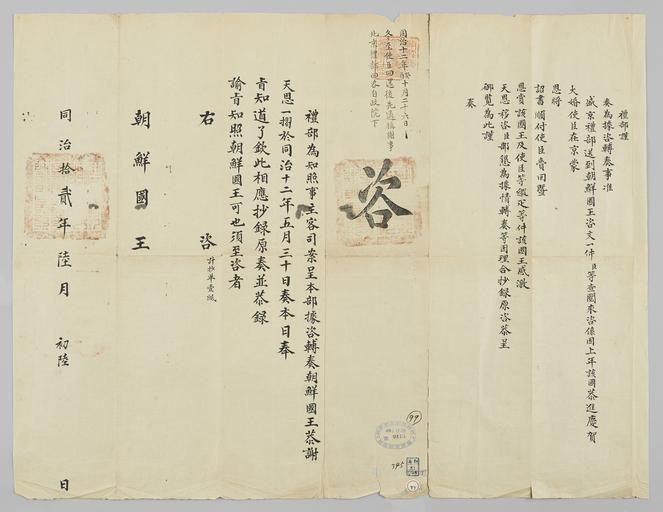 禮部謹
奏為據咨轉奏事准
盛京禮部送到朝鮮國王咨文一件臣等查閱來咨係因上年該國恭進慶賀
大婚使臣在京蒙
恩將
詔書順付使臣賫回暨
恩賞該國王及使臣等緞疋等件該國王感激
天恩移咨臣部懇為據情轉奏等因理合抄錄原咨恭呈
御覽為此謹
奏
同治十二年癸十月二十六日
冬至使臣回還後先通掃謝事
北京禮部回咨自政院下
咨
禮部為知照事主客司案呈本部據咨轉奏朝鮮國王恭謝
天恩一摺於同治十二年五月三十日奏本日奉
旨知道了欽此相應抄錄原奏並恭錄
諭旨知照朝鮮國王可也須至咨者
右咨 計抄單壹紙
朝鮮國王
同治拾貳年陸月初陸日
99
795